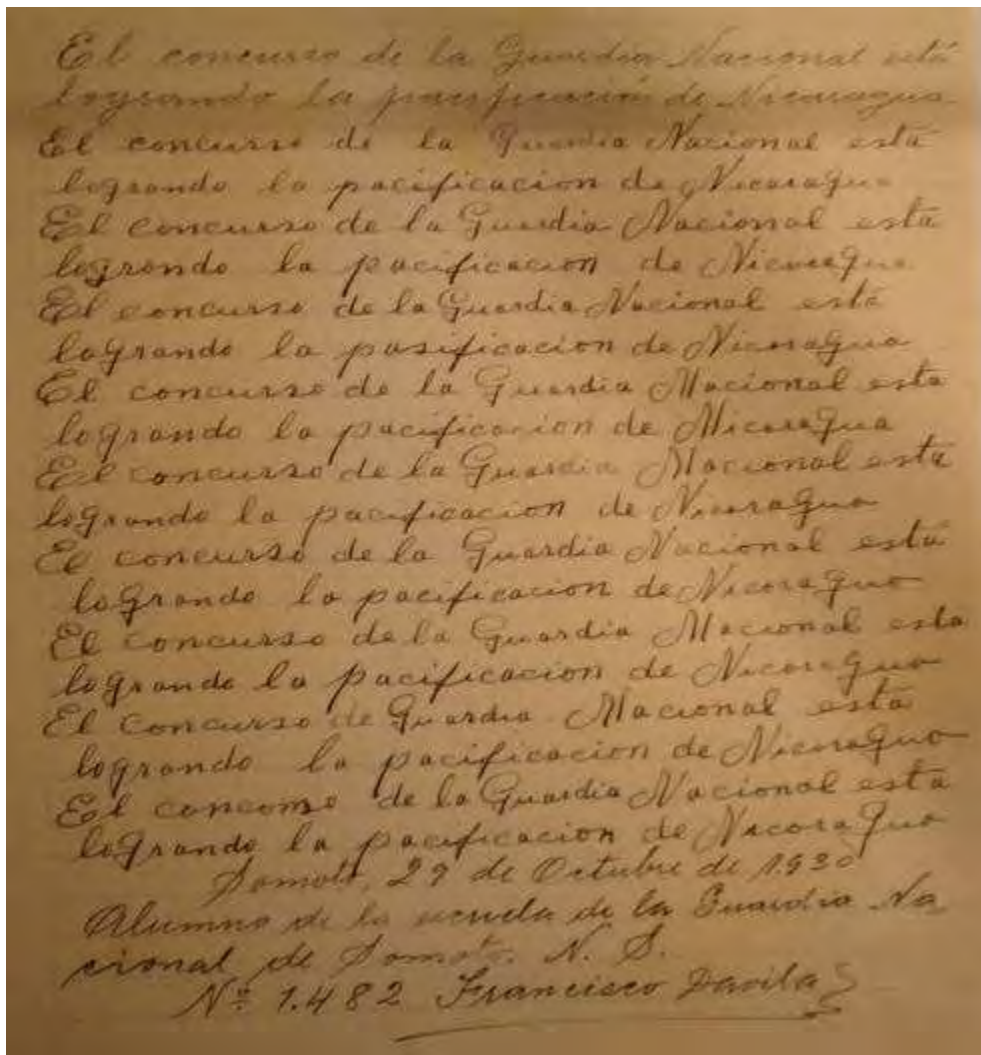 El concurso de la Guardia Nacional está
logrando la pacificación de Nicaragua
El concurso de la Guardia Nacional está
logrando la pacificacion de Nicaragua
El concurso de la Guardia Nacional esta
logrando la pacificacion de Nicaragua
El concurso de la Guardia Nacional está
logrando la pasificacion de Nicaragua
El concurso de la Guardia Nacional esta
logrando la pacificacion de Nicaragua
El concurso de la Guardia Nacional esta
logrando la pacificacion de Nicaragua
El concurso de la Guardia Nacional está
logrando la pacificacion de Nicaragua
El concurso de la Guardia Nacional esta
logrando la pacificacion de Nicaragua
El concurso de Guardia Nacional está
logrando la pacificacion de Nicaragua
El concomso de la Guardia Nacional esta
logrando la pacificacion de Nicoragua
Somoto, 29 de Octubre de 1.930
Alumno de la escuela de la Guardia Na
cional de Somoto. N. S.
Nº 1.482 Francisco Davila